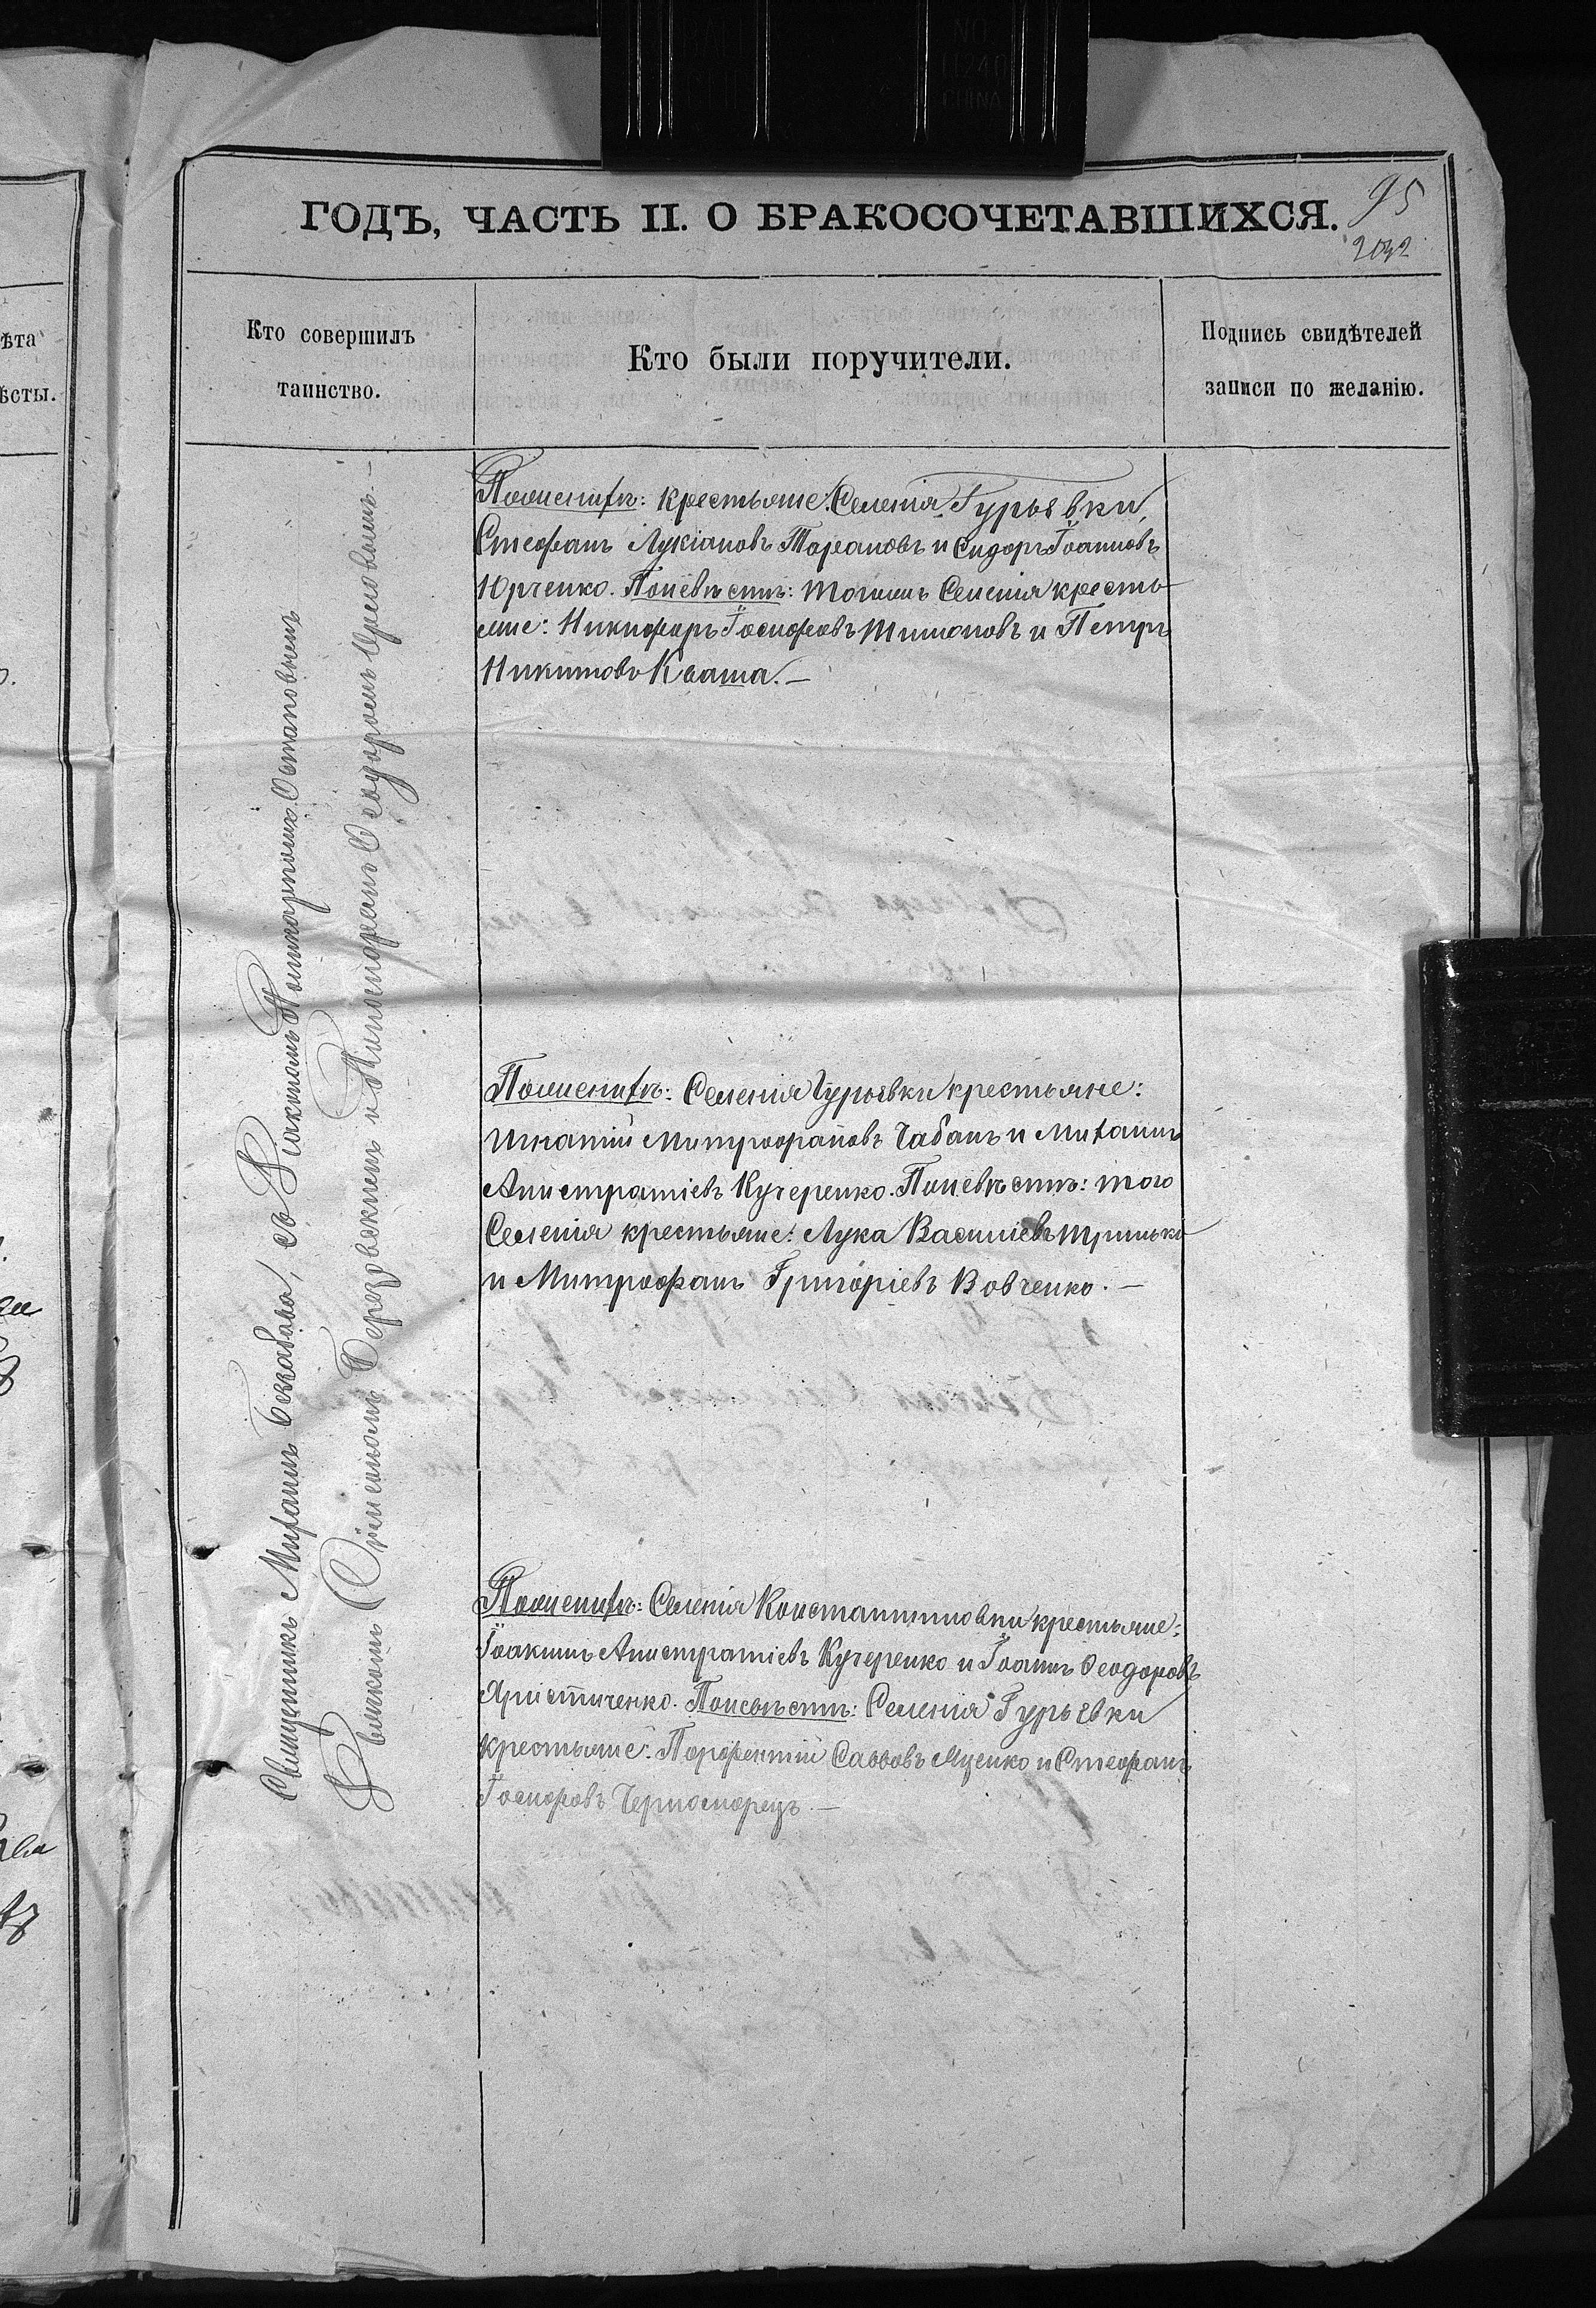 ГОДЪ, ЧАСТЬ II. О БРАКОСОЧЕТАВШИХСЯ.
95
2032
ѣта
ѣсты.
Кто совершилъ
таинство.
Кто были поручители.
Подпись свидѣтелей
записи по желанію.
Священникъ Михаилъ Беззабава, съ Діакономъ Поликарпомъ Остаповымъ
Псаломщ
По женихѣ: крестьяне: Селенія Гурьевки,
Стефанъ Лукіановъ Тарановъ и Сидоръ Іоанновъ
Юрченко. По невѣстѣ: того же Селенія кресть-
яне: Никифоръ Іосифовъ Тимоновъ и Петръ
Никитовъ Кваша. —
По женихѣ: Селенія Гурьевки крестьяне:
Игнатій Митрофановъ Чабанъ и Михаилъ
Анистратіевъ Кучеренко. По невѣстѣ: того
Селенія крестьяне: Лука Василіевъ Гринько
и Митрофанъ Григоріевъ Вовченко. —
По женихѣ: Селенія Константиновки крестьяне:
Іоакимъ Анистратіевъ Кучеренко и Іоаннъ Ѳеодоровъ
По невѣстѣ: Селенія Гурьевки
крестьяне: Порфентій Савововъ Мценко и Стефанъ
Іосифовъ Черноморецъ. —